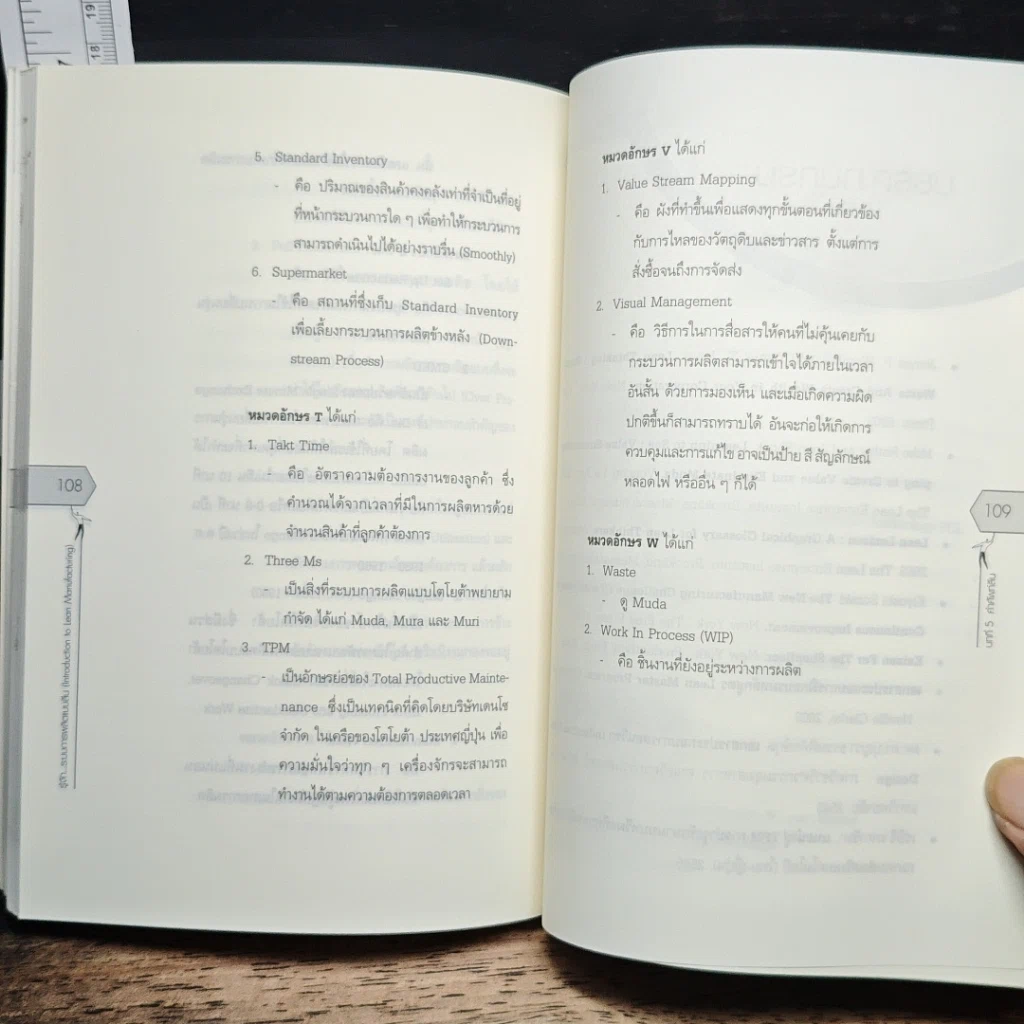 5. Standard Inventory
- คือ ปริมาณของสินค้าคงคลังเท่าที่จำเป็นที่อยู่
ที่หน้ากระบวนการใด ๆ เพื่อทำให้กระบวนการ
สามารถดำเนินไปได้อย่างราบรื่น (Smoothly)
6. Supermarket
- คือ สถานที่ซึ่งเก็บ Standard Inventory
เพื่อเลี้ยงกระบวนการผลิตข้างหลัง (Down-
stream Process)
หมวดอักษร T ได้แก่
1. Takt Time
- คือ อัตราความต้องการงานของลูกค้า ซึ่ง
คำนวณได้จากเวลาที่มีในการผลิตหารด้วย
จำนวนสินค้าที่ลูกค้าต้องการ
2. Three Ms
- เป็นสิ่งที่ระบบการผลิตแบบโตโยต้าพยายาม
กำจัด ได้แก่ Muda, Mura และ Muri
3. TPM
- เป็นอักษรย่อของ Total Productive Mainte-
nance ซึ่งเป็นเทคนิคที่คิดโดยบริษัทเดนโซ่
จำกัด ในเครือของโตโยต้า ประเทศญี่ปุ่น เพื่อ
ความมั่นใจว่าทุก ๆ เครื่องจักรจะสามารถ
ทำงานได้ตามความต้องการตลอดเวลา
108
รู้จัก...ระบบการผลิตแบบลีน (Introduction to Lean Manufacturing)
หมวดอักษร V ได้แก่
1. Value Stream Mapping
- คือ ผังที่ทำขึ้นเพื่อแสดงทุกขั้นตอนที่เกี่ยวข้อง
กับการไหลของวัตถุดิบและข่าวสาร ตั้งแต่การ
สั่งซื้อจนถึงการจัดส่ง
2. Visual Management
- คือ วิธีการในการสื่อสารให้คนที่ไม่คุ้นเคยกับ
กระบวนการผลิตสามารถเข้าใจได้ภายในเวลา
อันสั้น ด้วยการมองเห็น และเมื่อเกิดความผิด
ปกติขึ้นก็สามารถทราบได้ อันจะก่อให้เกิดการ
ควบคุมและการแก้ไข อาจเป็นป้าย สี สัญลักษณ์
หลอดไฟ หรืออื่น ๆ ก็ได้
หมวดอักษร W ได้แก่
1. Waste
- ดู Muda
2. Work In Process (WIP)
- คือ ชิ้นงานที่ยังอยู่ระหว่างการผลิต
109
บทที่ 5 คำศัพท์ลีน
18
19